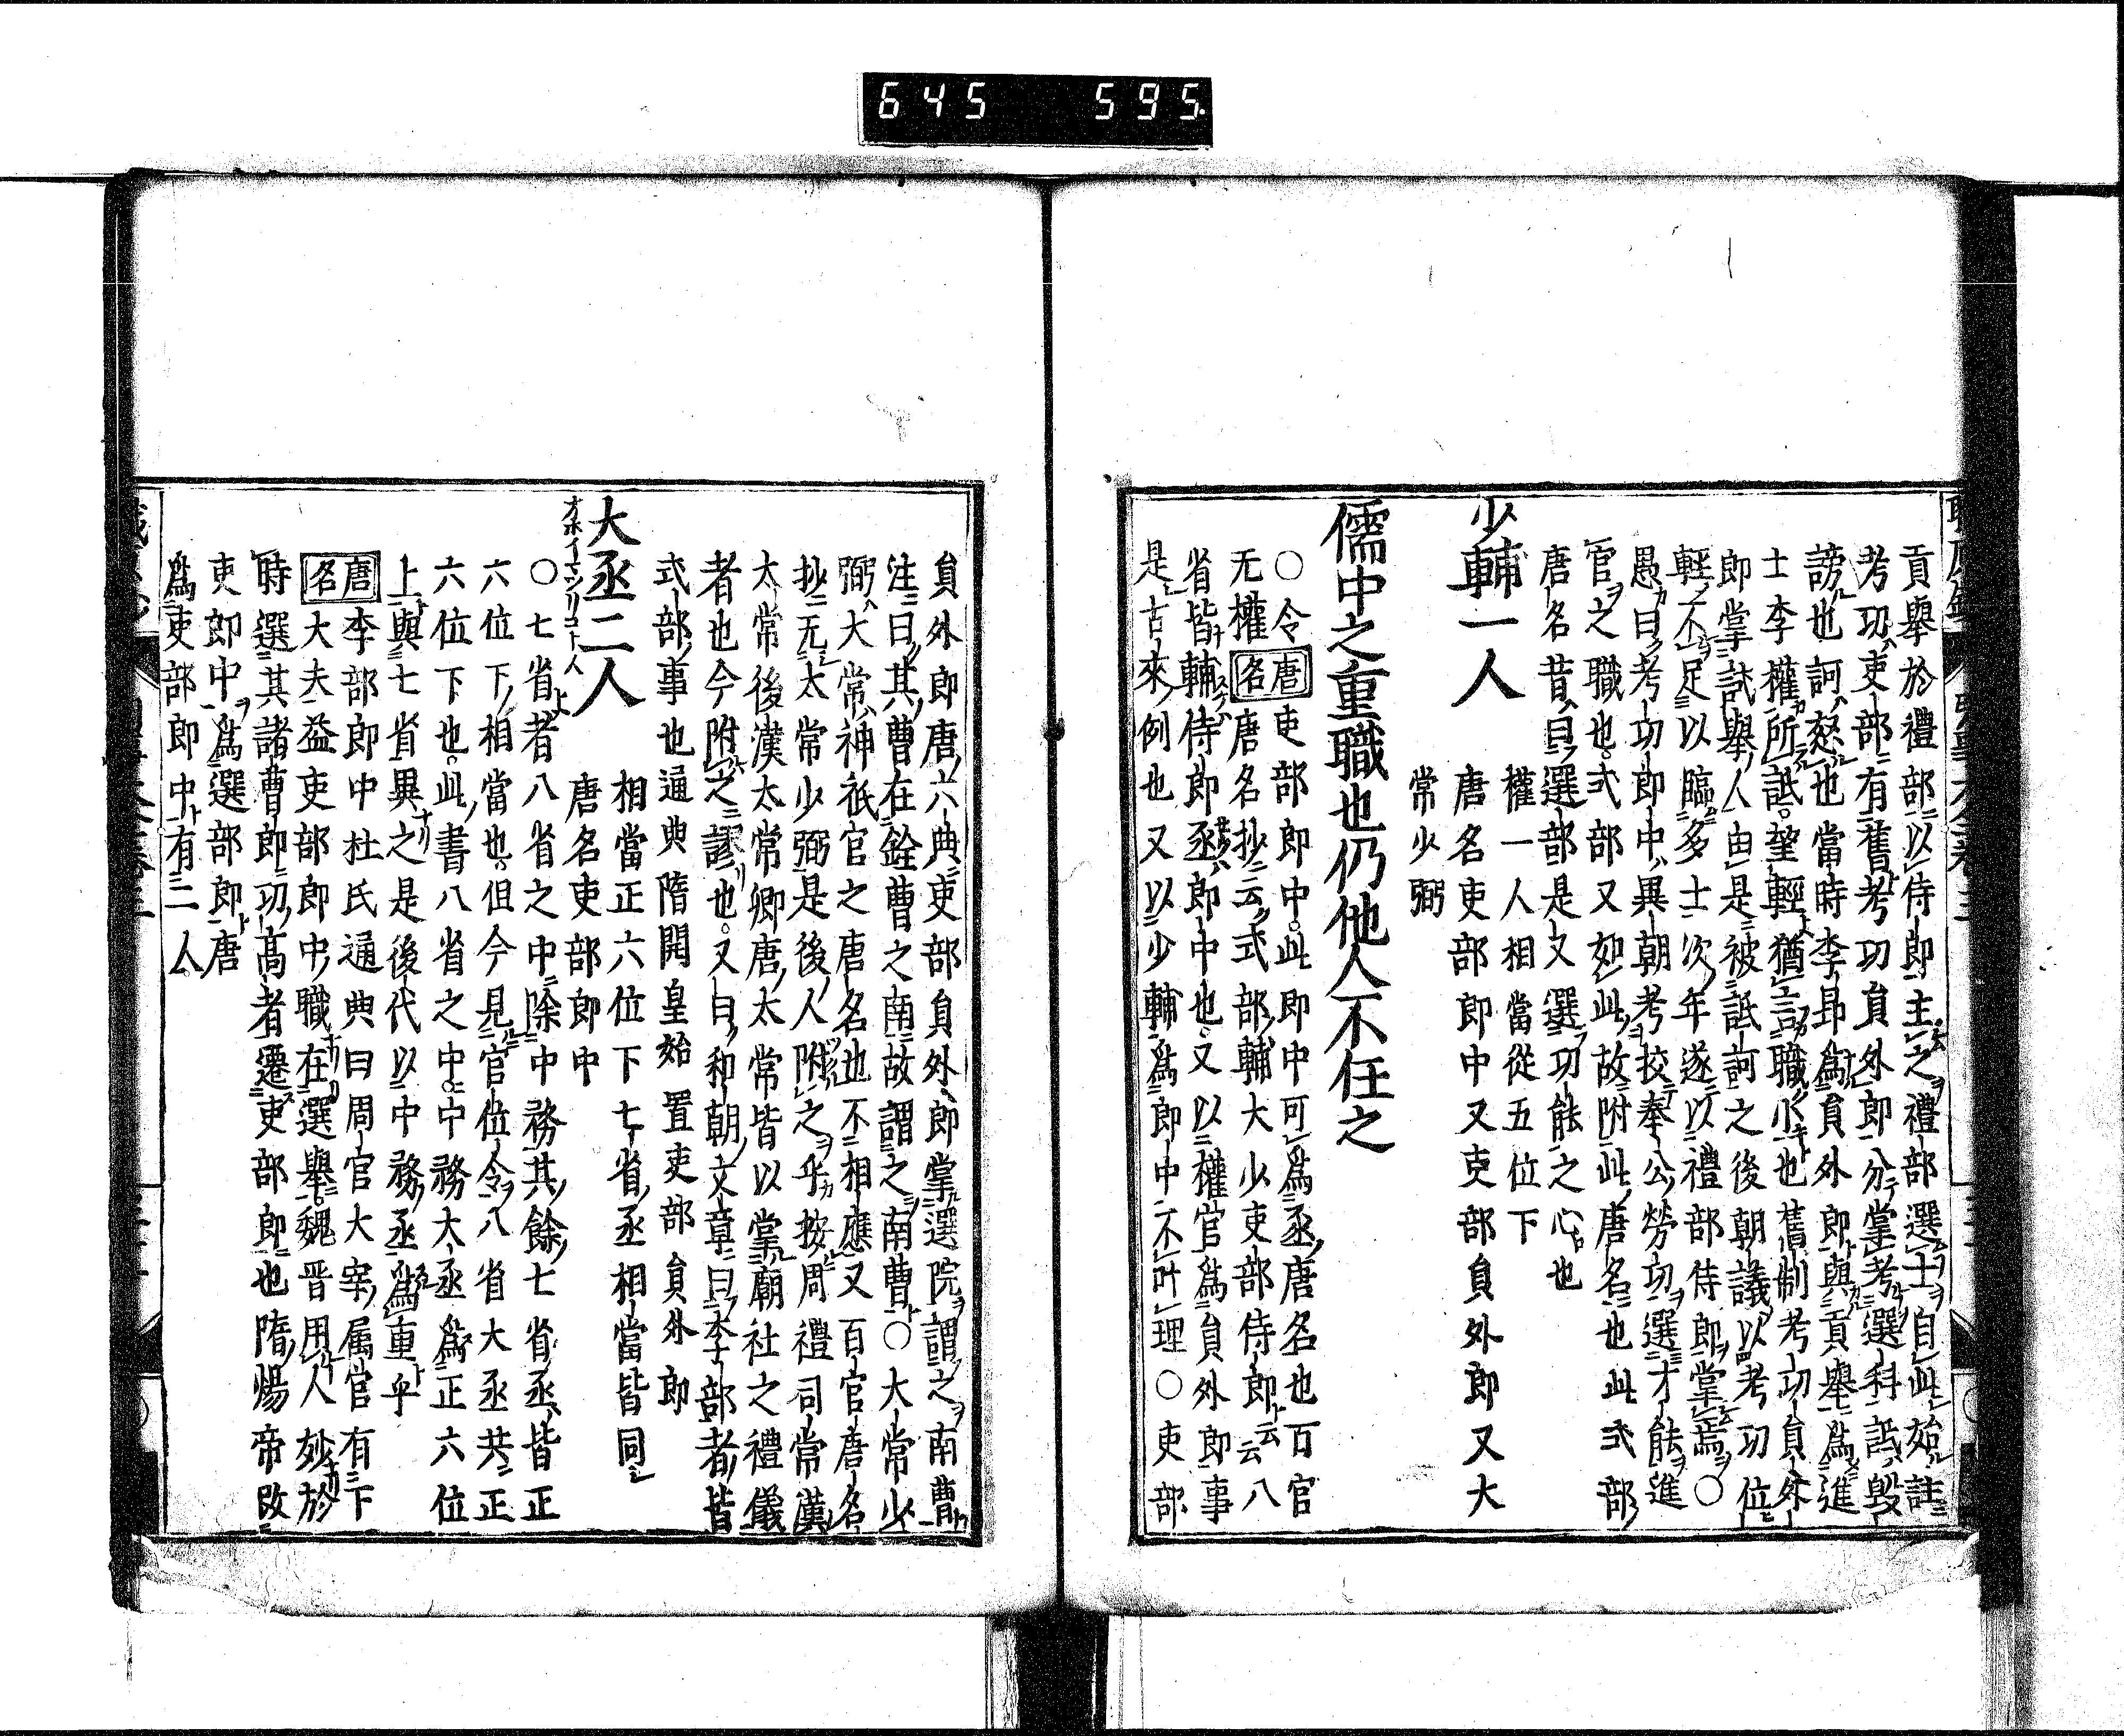 645 595.
貢舉於禮部以侍郎主之禮部選士自此始註
考功吏部有舊考功員外郎八分掌考選科詆毀
謗也訶怒也當時李昻爲員外郎與貢舉爲進
士李權所詆埾輕猶言職小也舊制考功員外
郎掌試舉人由是被詆訶之後朝議以考功位
輕不足以臨多士次年遂以禮部侍郎掌焉○
愚曰考功郎中異朝考校奉公勞功選才能進
官之職也式部又如此故附此唐名也此式部
唐名昔曰選部是又選功能之心也
少輔一人
權一人相當從五位下
唐名吏部郎中又吏部員外郎又大
常少弼
儒中之重職也仍他人不任之
○令唐名吏部郎中此郎中可爲丞唐名也百官
无權唐名抄云式部輔大少吏部侍郎云云八
省皆輔侍郎丞郎中也又以權官爲員外郎事
是古來例也又以少輔爲郎中不叶理○吏部
員外郎唐六典吏部員外郎掌選院謂之南曹
注曰其曹在銓曹之南故謂之南曹○大常少
弼大常神祇官之唐名也不相應又百官唐名
抄无太常少弼是後人附之乎按周禮司常漢
太常後漢太常卿唐太常皆以掌廟社之禮儀
者也今附之謬也又曰和朝文章曰李部者皆
式部事也通典隋開皇始置吏部員外郎
大丞二人
オホイマツリコト人
相當正六位下七省丞相當皆同
唐名吏部郎中
○七省者八省之中除中務其餘七省丞皆正
六位下相當也但今見官位令八省大丞共正
六位下也此書八省之中中務大丞爲正六位
上與七省異之是後代以中務丞爲重乎
唐名李部郎中杜氏通典曰周官大宰属官有下
大夫益吏部郎中職在選舉魏晋用人妙於
時選其諸曹郎功高者遷吏部郎也隋煬帝改
吏郎中爲選部郎唐
爲吏部郎中有二人